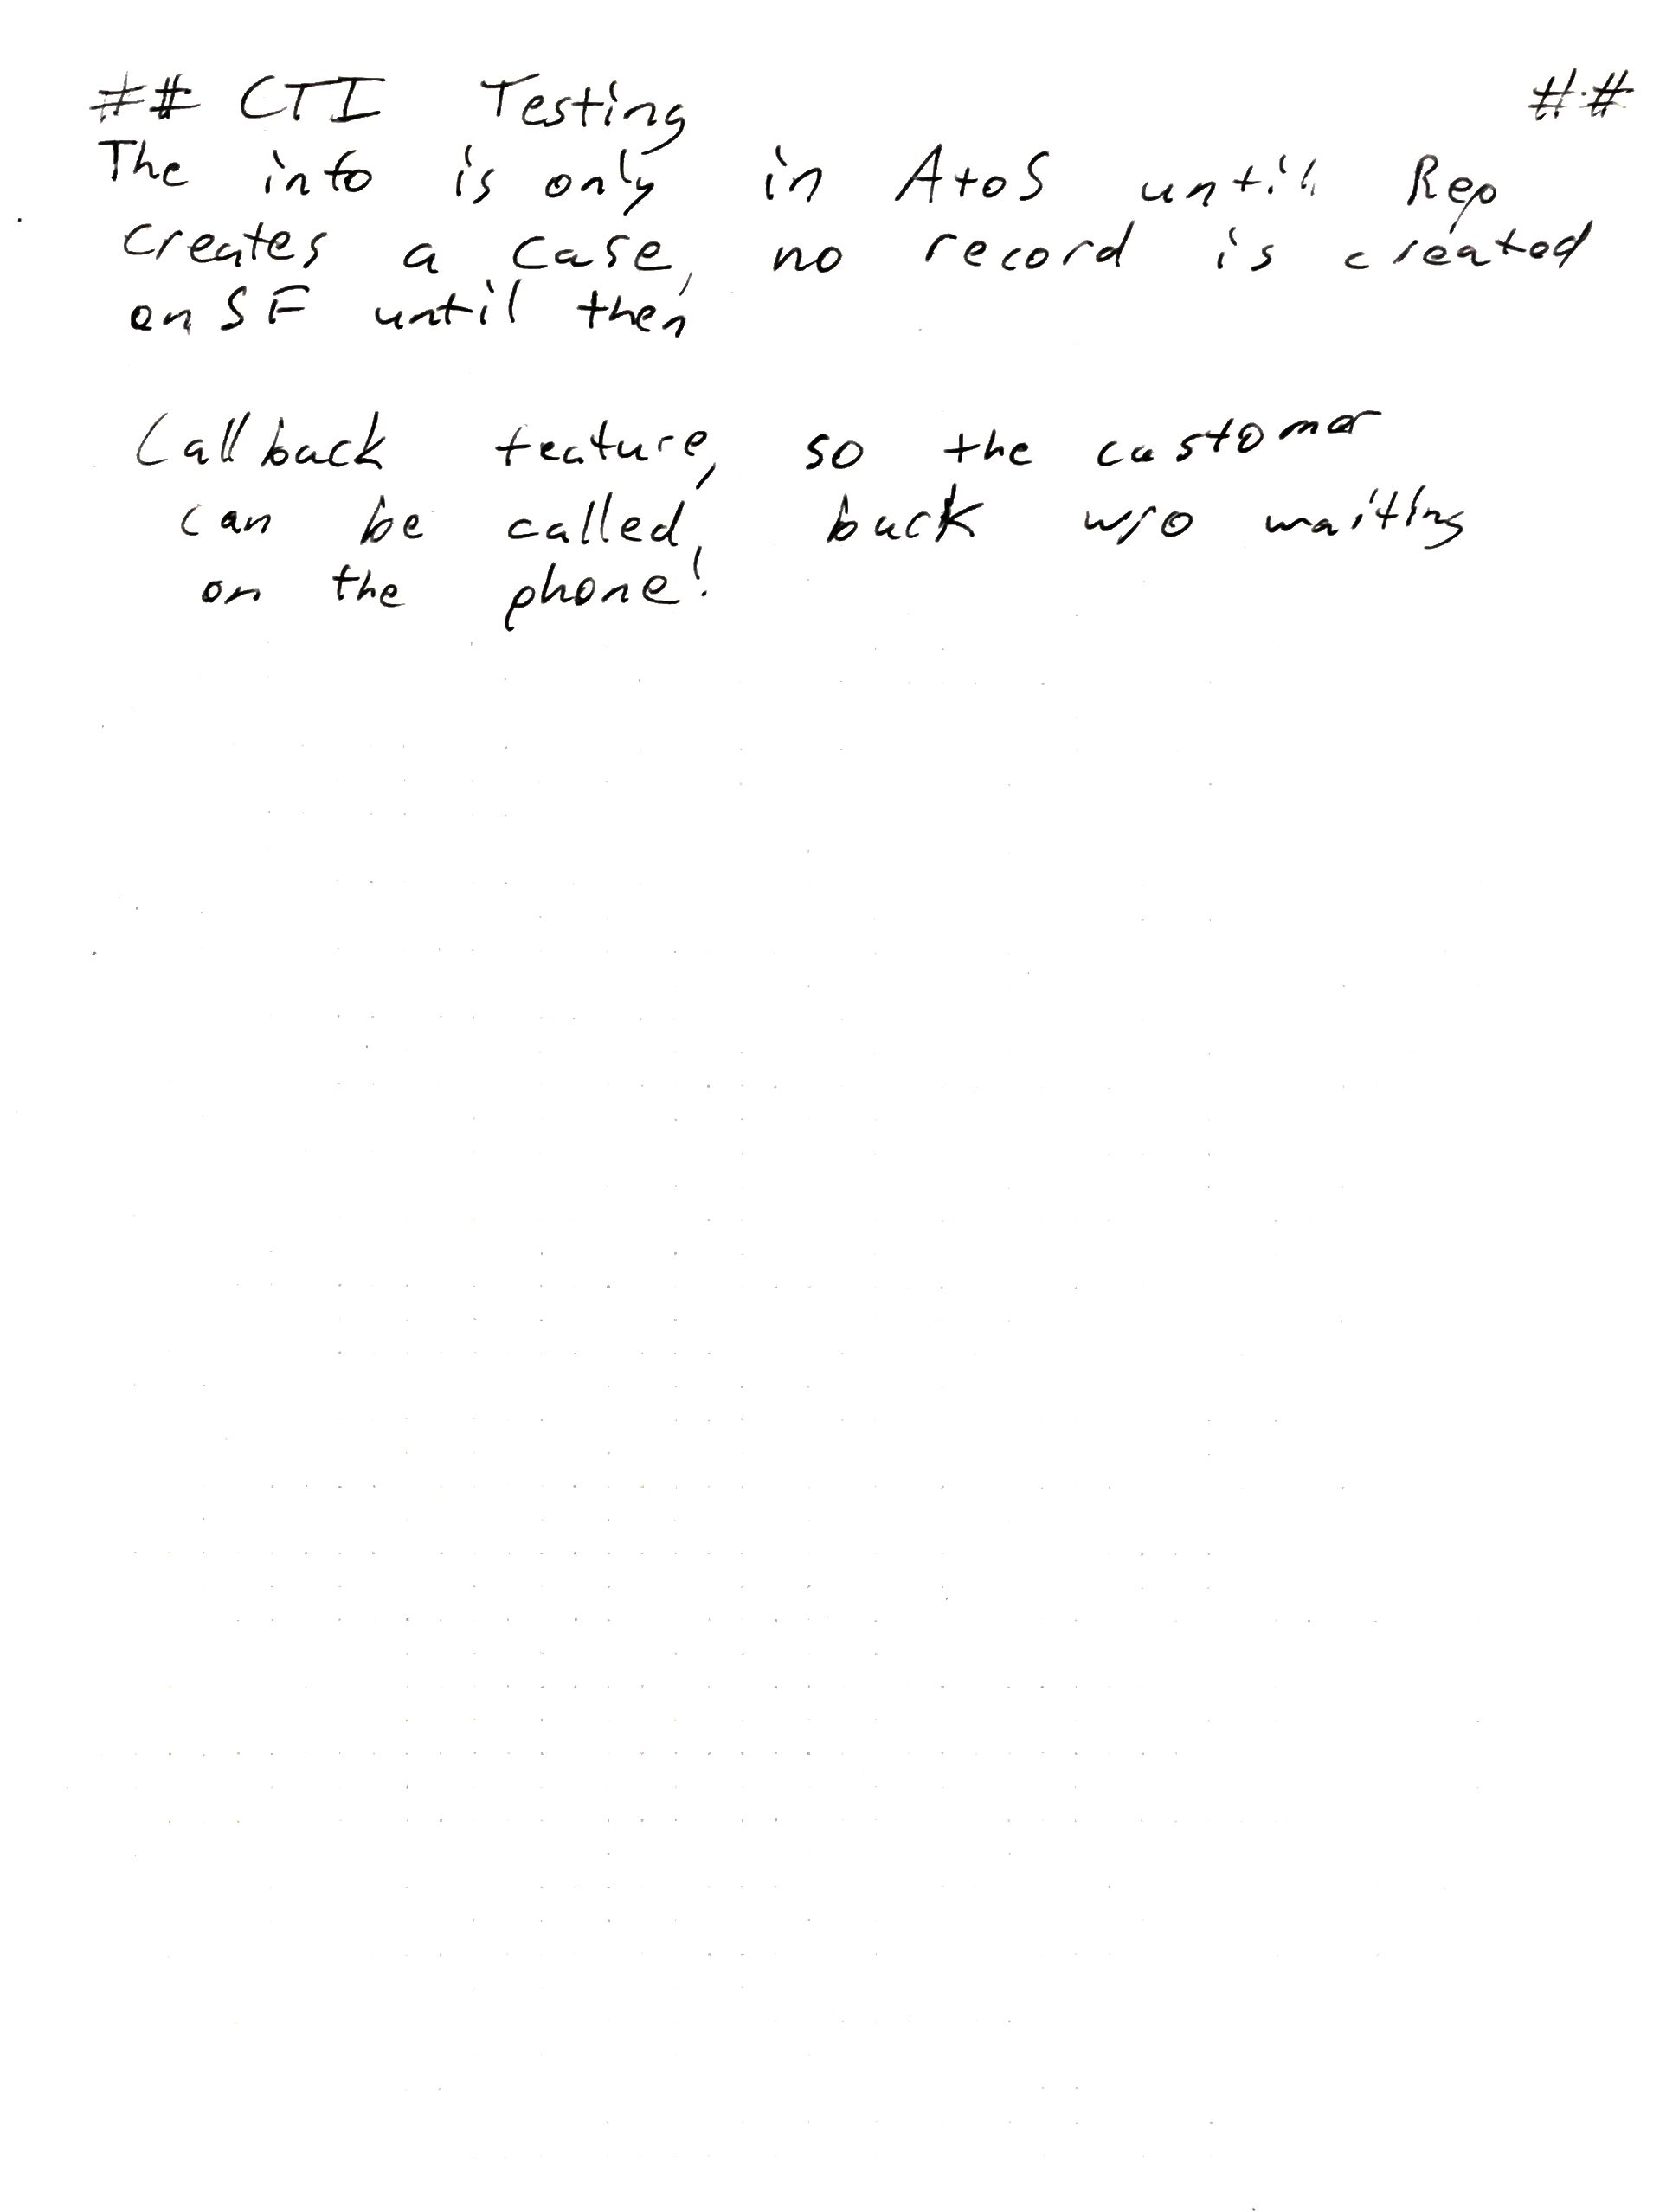 ## CTI Testing ##
The info is only in AtoS until Rep
creates a case, no record is created
on SF until then
Callback feature, so the customer
can be called back w/o waiting
on the phone!